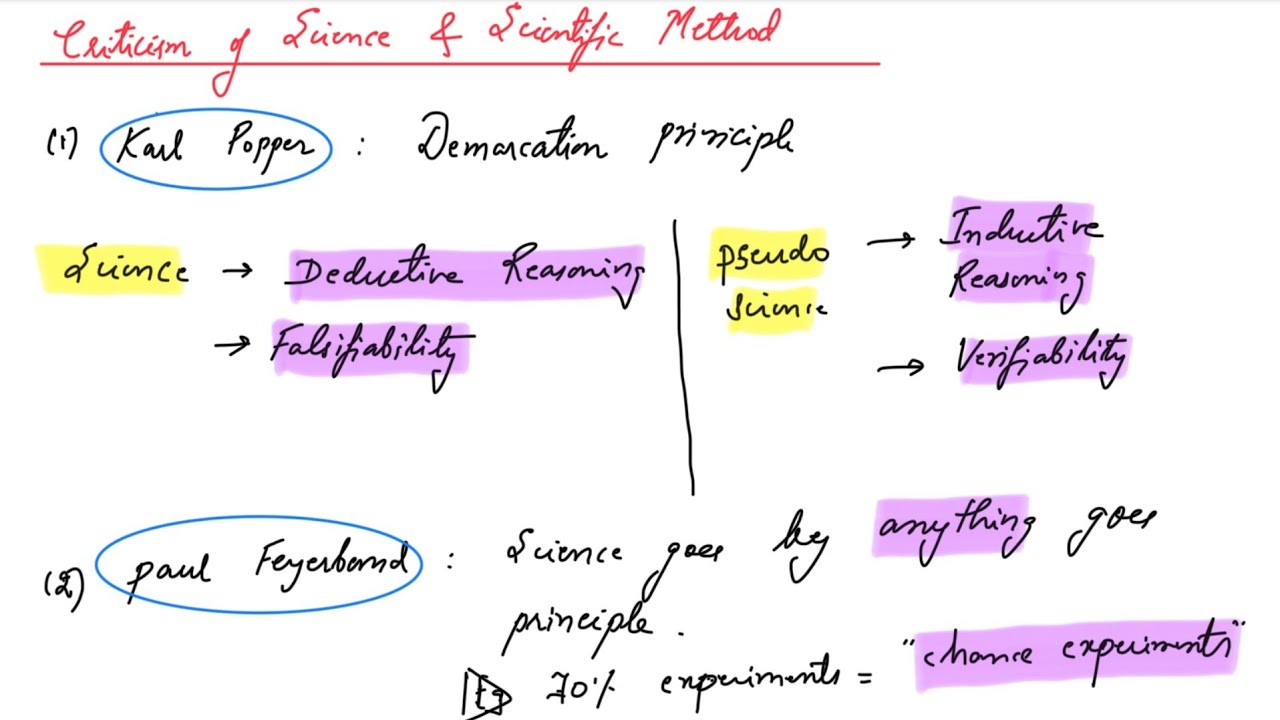 Criticism of Science & Scientific Method
(1) Karl Popper : Demarcation principle
Science → Deductive Reasoning
→ Falsifiability
pseudo science → Inductive Reasoning
→ Verifiability
(2) paul Feyerbend : Science goes by anything goes
principle.
Eg 70% experiments = "chance experiments"